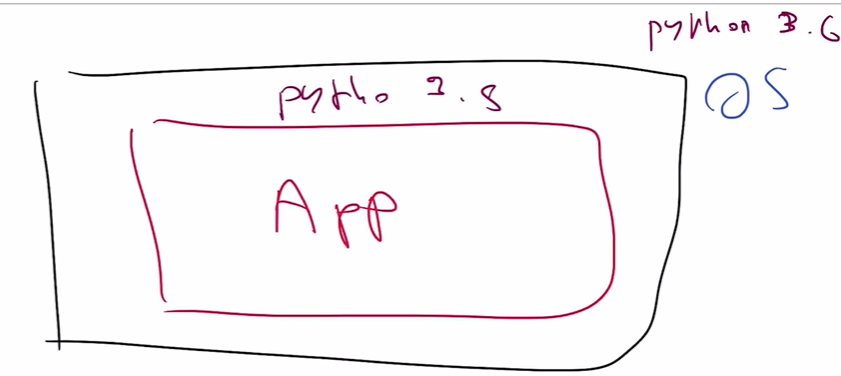 python 3.6
OS
pytho 3.8
App